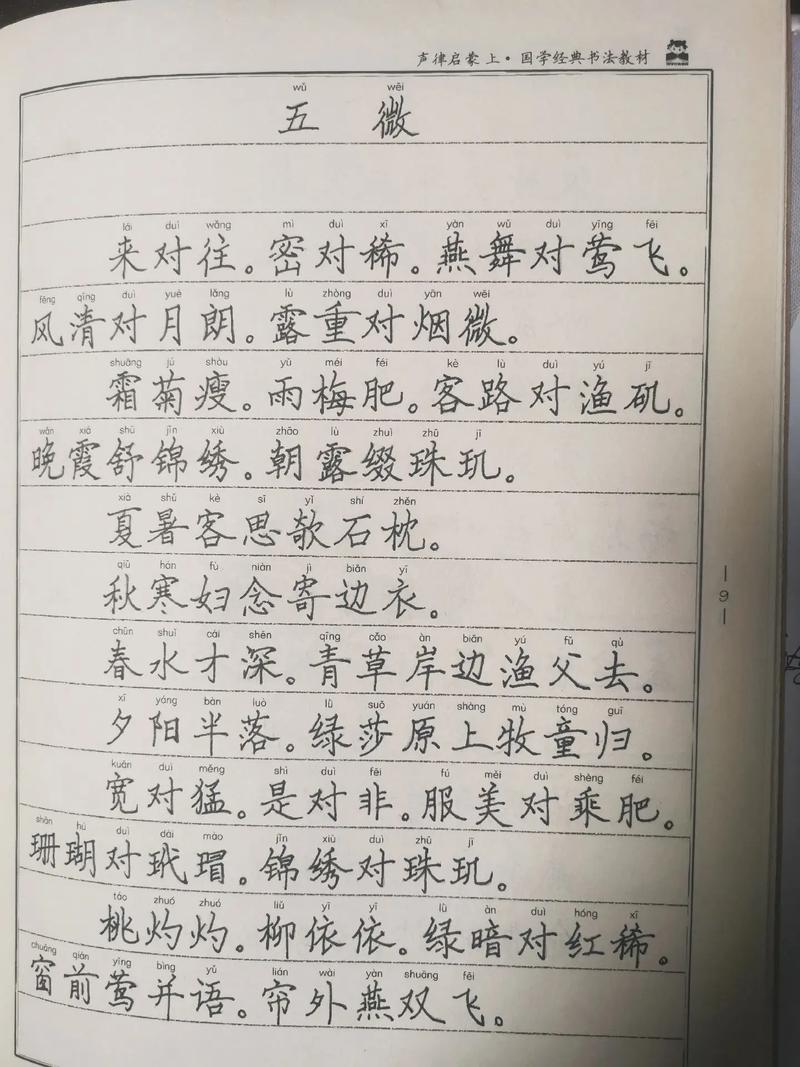 声律启蒙 上·国学经典书法教材
wǔ wēi
五 微
lái duì wǎng mì duì xī yàn wǔ duì yīng fēi
来对往。密对稀。燕舞对莺飞。
fēng qīng duì yuè lǎng lù zhòng duì yān wēi
风清对月朗。露重对烟微。
shuāng jú shòu yǔ méi féi kè lù duì yú jī
霜菊瘦。雨梅肥。客路对渔矶。
wǎn xiá shū jǐn xiù zhāo lù zhuì zhū jī
晚霞舒锦绣。朝露缀珠玑。
xià shǔ kè sī yǐ shí zhěn
夏暑客思欹石枕。
qiū hán fù niàn jì biān yī
秋寒妇念寄边衣。
chūn shuǐ cái shēn qīng cǎo àn biān yú fǔ qù
春水才深。青草岸边渔父去。
xī yáng bàn luò lǜ suō yuán shàng mù tóng guī
夕阳半落。绿莎原上牧童归。
kuān duì měng shì duì fēi fú měi duì shèng féi
宽对猛。是对非。服美对乘肥。
shān hú duì dài mào jǐn xiù duì zhū jī
珊瑚对玳瑁。锦绣对珠玑。
táo zhuó zhuó liǔ yī yī lǜ àn duì hóng xī
桃灼灼。柳依依。绿暗对红稀。
chuāng qián yīng bìng yǔ lián wài yàn shuāng fēi
窗前莺并语。帘外燕双飞。
—9—